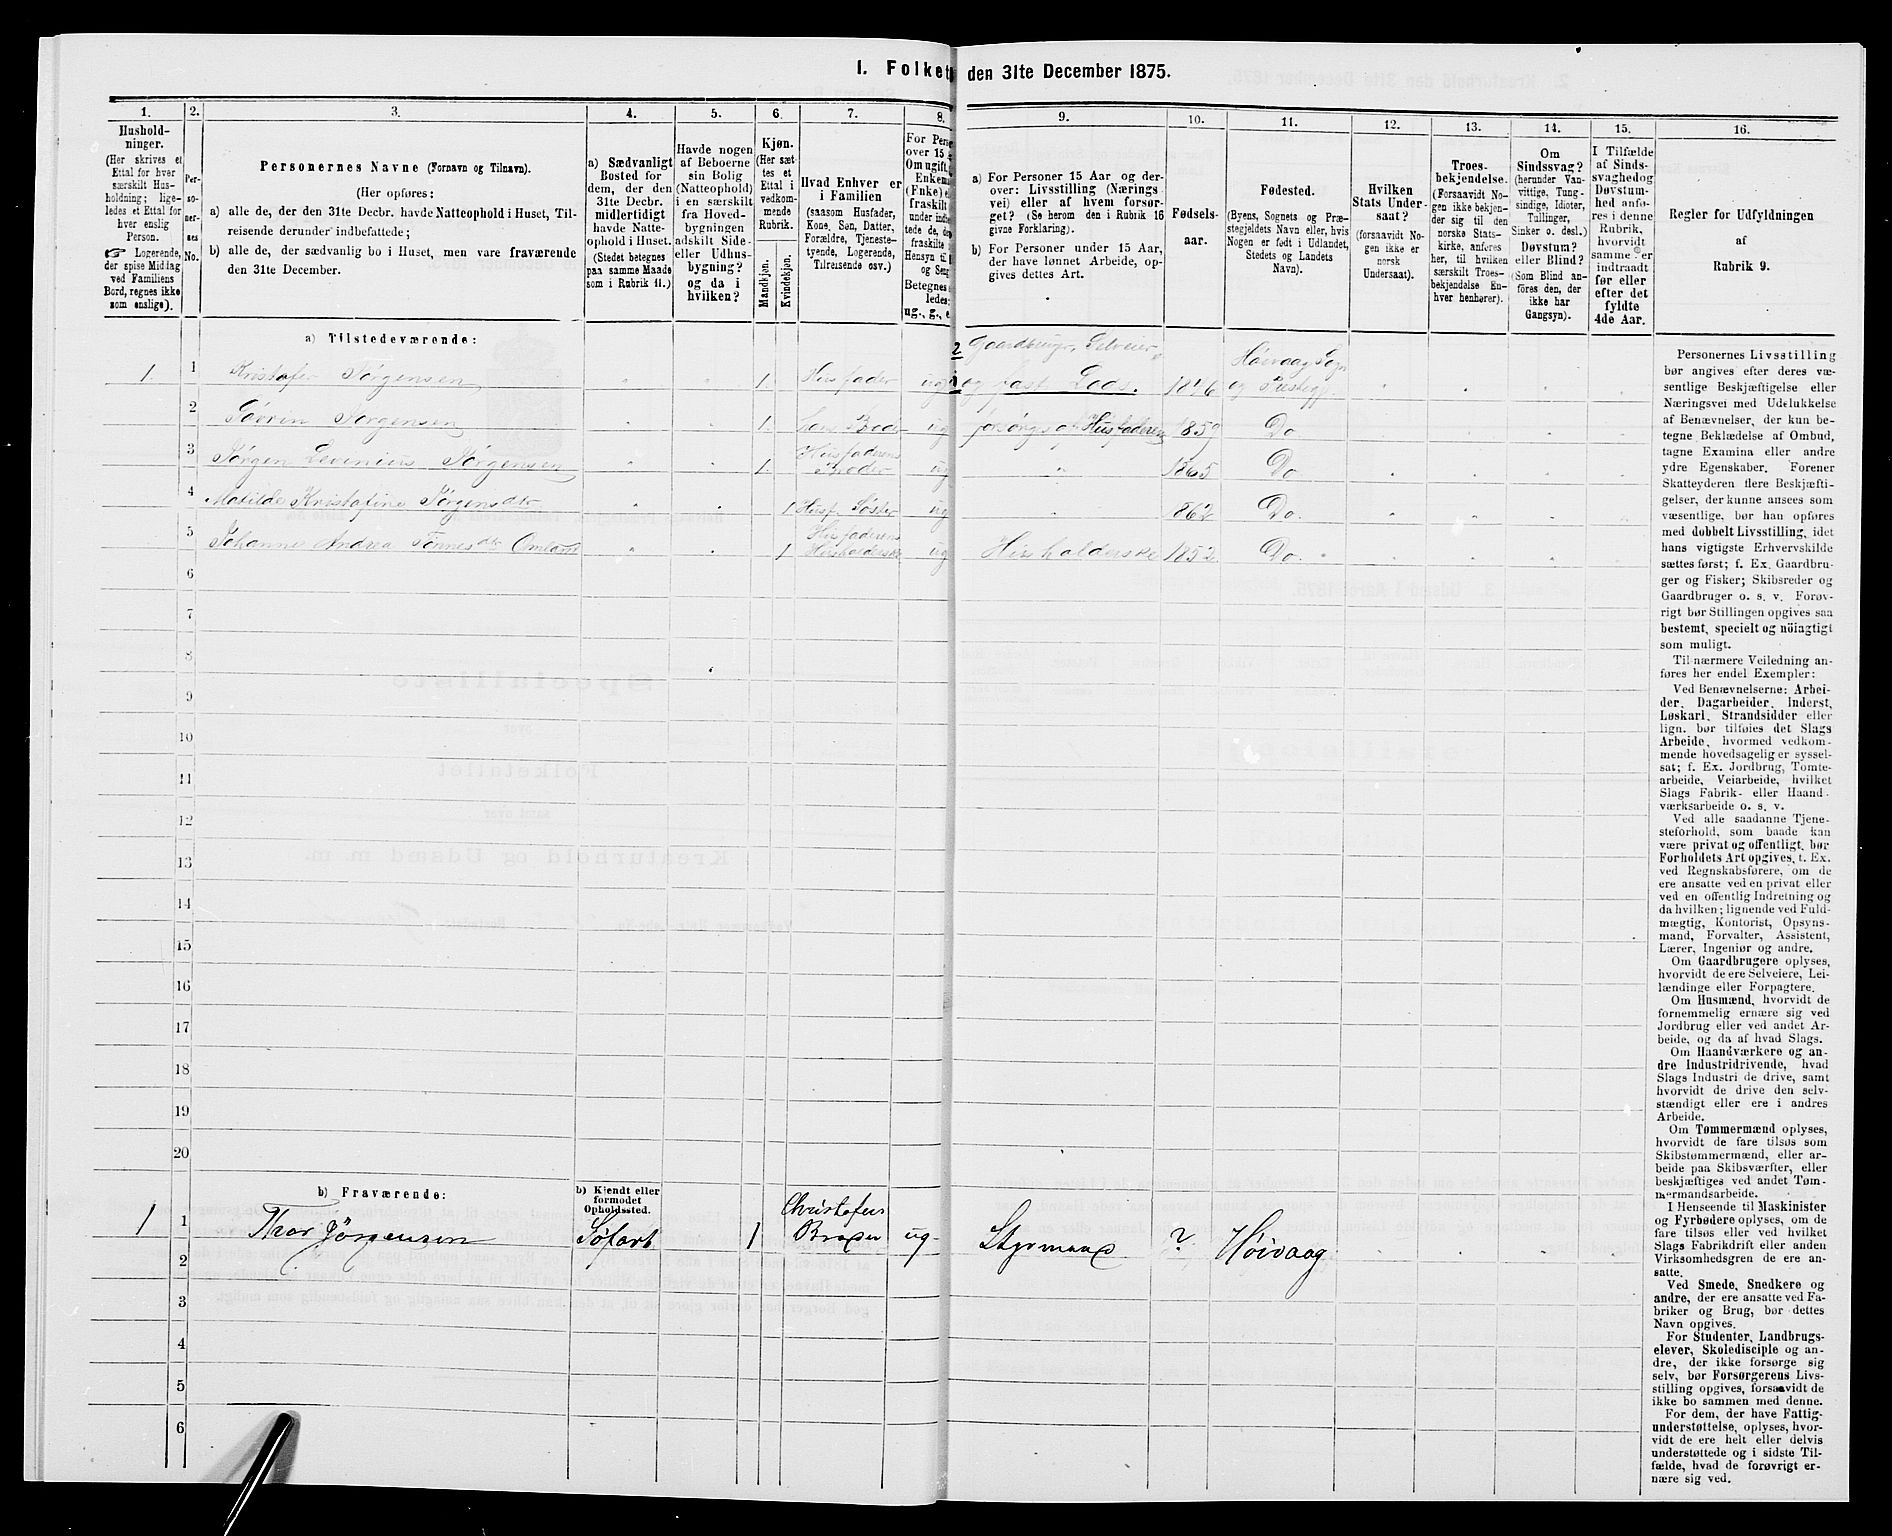 I. Folket den 31te December 1875.
1.
Hushold-
ninger.
(Her skrives et
Ettal for hver
særskilt Hus-
holdning; lige-
ledes et Ettal for
hver enslig
Person.
☞ Logerende,
der spise Middag
ved Familiens
Bord, regnes ikke
som enslige).
2.
Per-
so-
ner-
nes
No.
3.
Personernes Navne (Fornavn og Tilnavn).
(Her opføres:
a) alle de, der den 31te Decbr. havde Natteophold i Huset, Til-
reisende derunder indbefattede;
b) alle de, der sædvanlig bo i Huset, men vare fraværende
den 31te December.
4.
a) Sædvanligt
Bosted for
dem, der den
31te Decbr.
midlertidigt
havde Natte-
ophold i Huset.
(Stedet betegnes
paa samme Maade
som i Rubrik 11.)
5.
Havde nogen
af Beboerne
sin Bolig
(Natteophold)
i en særskilt
fra Hoved-
bygningen
adskilt Side-
eller Udhus-
bygning?
og da i
hvilken?
6.
Kjøn.
(Her sæt-
tes et
Ettal i
vedkom-
mende
Rubrik.
Mandkjøn.
Kvindekjøn.
7.
Hvad Enhver er
i Familien
(saasom Husfader,
Kone, Søn, Datter,
Forældre, Tjeneste-
tyende, Logerende,
Tilreisende osv.)
8.
For Pers
over 15
Om ugift,
Enkem
(Enke) e
fraskilt
under indbe
tede de, d
fraskilte
Hensyn til
og Seng
Betegnes
ledes:
ug., g., e
9.
a) For Personer 15 Aar og der-
over: Livsstilling (Nærings
vei) eller af hvem forsør-
get? (Se herom den i Rubrik 16
givne Forklaring).
b) For Personer under 15 Aar,
der have lønnet Arbeide, op-
gives dettes Art.
10.
Fødsels-
aar.
11.
Fødested.
(Byens, Sognets og Præ-
stegjeldets Navn eller, hvis
Nogen er født i Udlandet,
Stedets og Landets
Navn).
12.
Hvilken
Stats Under-
saat?
(forsaavidt No-
gen ikke er
norsk
Undersaat).
13.
Troes-
bekjendelse.
(Forsaavidt No-
gen ikke bekjen-
der sig til den
norske Stats-
kirke, anføres
her, til hvilken
særskilt Troes-
bekjendelse En-
hver henhører).
14.
Om
Sindssvag?
(herunder Van-
vittige, Tung-
sindige, Idioter,
Tullinger,
Sinker o. desl.)
Døvstum?
eller Blind?
(Som Blind an-
føres den, der
ikke har
Gangsyn).
15.
I Tilfælde
af Sinds-
svaghed og
Døvstum-
hed anfø-
res i denne
Rubrik,
hvorvidt
samme er
indtraadt
før eller
efter det
fyldte
4de Aar.
16.
Regler for Udfyldningen
af
Rubrik 9.
a) Tilstedeværende:
1. 1 Kristofer Jørgensen 1. Husfader ug 2 Gaardbruger, Selveier og fast Lods. 1846 Høivaag Sogn og Præstegj.
2 Sørrin Jørgensen 1. hans Broder ug forsørges af Husfaderen 1859 Do
3 Jørgen Levenius Jørgensen 1. Husfaderens Broder ug " 1865 Do
4 Matilde Kristofine Jørgensdtr 1 Husf. Søster ug " 1862 Do.
5 Johanne Andrea Tønnesdtr Omland 1 Husfaderens Husholderske ug Husholderske 1852 Do.
6
7
8
9
10
11
12
13
14
15
16
17
18
19
20
b) Fraværende:
b) Kjendt eller
formodet
Opholdssted.
1 1 Thor Jørgensen Søfart 1 Christofers Broder ug. Styrmand ? Høivaag
2
3
4
5
6
Personernes Livsstilling
bør angives efter deres væ-
sentlige Beskjæftigelse eller
Næringsvei med Udelukkelse
af Benævnelser, der kun be-
tegne Beklædelse af Ombud,
tagne Examina eller andre
ydre Egenskaber. Forener
Skatteyderen flere Beskjæfti-
gelser, der kunne ansees som
væsentlige, bør han opføres
med dobbelt Livsstilling, idet
hans vigtigste Erhvervskilde
sættes først; f. Ex. Gaardbru-
ger og Fisker; Skibsreder og
Gaardbruger o. s. v. Forøv-
rigt bør Stillingen opgives saa
bestemt, specielt og nöiagtigt
som muligt.
Til nærmere Veiledning an-
føres her endel Exempler:
Ved Benævnelserne: Arbei-
der, Dagarbeider, Inderst,
Løskarl, Strandsidder eller
lign. bør tilføies det Slags
Arbeide, hvormed vedkom-
mende hovedsagelig er syssel-
sat; f. Ex. Jordbrug, Tomte-
arbeide, Veiarbeide, hvilket
Slags Fabrik- eller Haand-
værksarbeide o. s. v.
Ved alle saadanne Tjene-
steforhold, som baade kan
være privat og offentligt, bør
Forholdets Art opgives, t. Ex.
ved Regnskabsførere, om de
ere ansatte ved en privat eller
ved en offentlig Indretning og
da hvilken; lignende ved Fuld-
mægtig, Kontorist, Opsyns-
mand, Forvalter, Assistent,
Lærer, Ingeniør og andre.
Om Gaardbrugere oplyses,
hvorvidt de ere Selveiere, Lei-
lændinge eller Forpagtere.
Om Husmænd, hvorvidt de
fornemmelig ernære sig ved
Jordbrug eller ved andet Ar-
beide, og da af hvad Slags.
Om Haandværkere og an-
dre Industridrivende, hvad
Slags Industri de drive, samt
hvorvidt de drive den selv-
stændigt eller ere i andres
Arbeide.
Om Tømmermænd oplyses,
hvorvidt de fare tilsøs som
Skibstømmermænd, eller ar-
beide paa Skibsværfter, eller
beskjæftiges ved andet Tøm-
mermandsarbeide.
I Henseende til Maskinister
og Fyrbødere oplyses, om de
fare tilsøs eller ved hvilket
Slags Fabrikdrift eller anden
Virksomhedsgren de ere an-
satte.
Ved Smede, Snedkere og
andre, der ere ansatte ved Fa-
briker og Brug, bør dettes
Navn opgives.
For Studenter, Landbrugs-
elever, Skoledisciple og an-
dre, der ikke forsørge sig
selv, bør Forsørgerens Livs-
stilling opgives, forsaavidt de
ikke bo sammen med denne.
For dem, der have Fattig-
understøttelse, oplyses, hvor-
vidt de ere helt eller delvis
understøttede og i sidste Til-
fælde, hvad de forøvrigt er-
nære sig ved.